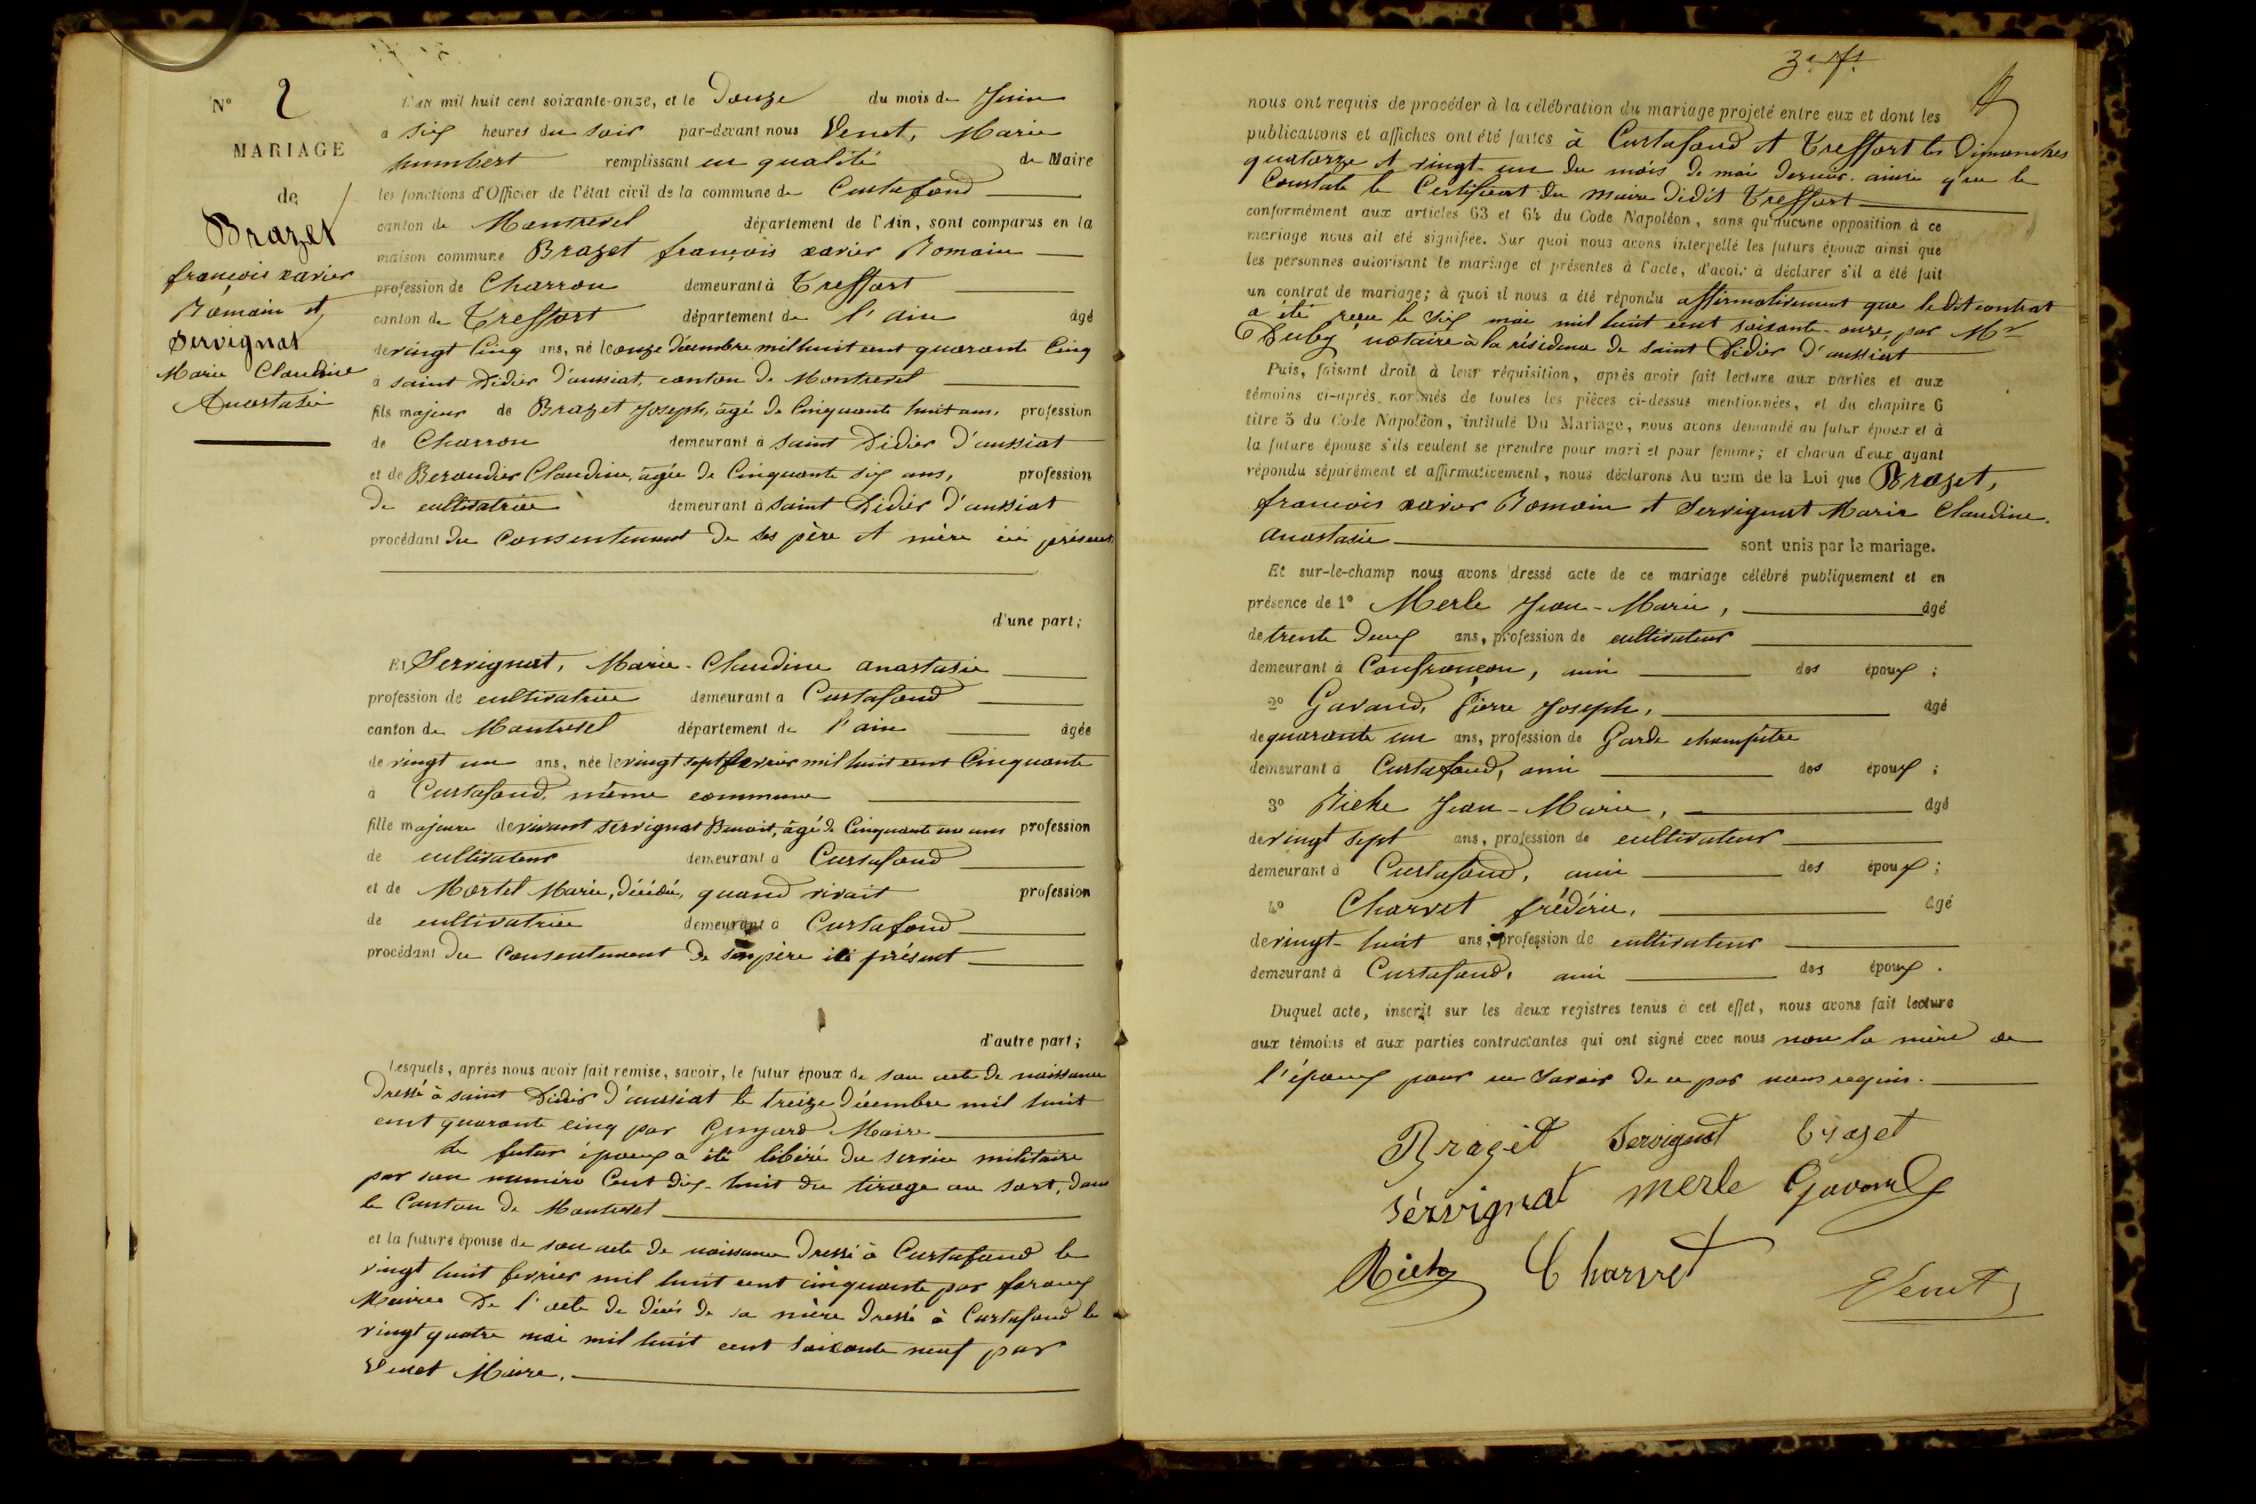 N° 2
MARIAGE
de
Brazet
françois xavier
Romain et
Servignat
Marie Claudine
Anastasie
L'an mil huit cent soixante-onze, et le Douze du mois de Juin
à six heures du soir par-devant nous Venet, Marie
humbert remplissant en qualité de Maire
les fonctions d'Officier de l'état civil de la commune de Curtafond
canton de Montrevel département de l'Ain, sont comparus en la
maison commune Brazet françois xavier Romain
profession de Charron demeurant à Treffort
canton de Treffort département de l'ain âgé
de vingt cinq ans, né le onze décembre mil huit cent quarante cinq
à saint Didier d'aussiat, canton de Montrevel
fils majeur de Brazet Joseph, âgé de cinquante huit ans, profession
de Charron demeurant à saint Didier d'aussiat
et de Beraudier Claudine, âgée de cinquante six ans, profession
de cultivatrice demeurant à saint Didier d'aussiat
procédant du consentement de ses père et mère ici présents
d'une part;
Et Servignat, Marie-Claudine anastasie
profession de cultivatrice demeurant à Curtafond
canton de Montrevel département de l'ain âgée
de vingt un ans, née le vingt sept fevrier mil huit cent cinquante
à Curtafond, même commune
fille majeure de vivant Servignat Benoit, âgé de cinquante un ans profession
de cultivateur demeurant à Curtafond
et de Mortel Marie, décédée, quand vivait profession
de cultivatrice demeurant à Curtafond
procédant du consentement de son père ici présent
d'autre part;
Lesquels, après nous avoir fait remise, savoir, le futur époux de son acte de naissance
dressé à saint Didier d'aussiat le treize décembre mil huit
cent quarante cinq par Guyard Maire
Le futur époux a été libéré du service militaire
par son numéro Cent dix-huit du tirage au sort, dans
le Canton de Montrevel
et la future épouse de son acte de naissance dressé à Curtafond le
vingt huit fevrier mil huit cent cinquante par
Maire De l'acte de décès de sa mère dressé à Curtafond le
vingt quatre mai mil huit cent soixante neuf par
Venet Maire.
nous ont requis de procéder à la célébration du mariage projeté entre eux et dont les
publications et affiches ont été faites à Curtafond et Treffort les Dimanches
quatorze et vingt-un du mois de mai dernier. ainsi que le
Constate le Certificat du Maire dudit Treffort
conformément aux articles 63 et 64 du Code Napoléon, sans qu'aucune opposition à ce
mariage nous ait été signifiée. Sur quoi nous avons interpellé les futurs époux ainsi que
les personnes autorisant le mariage et présentes à l'acte, d'avoir à déclarer s'il a été fait
un contrat de mariage; à quoi il nous a été répondu affirmativement que le dit contrat
a été reçu le six mai mil huit cent soixante-onze, par Mr
Duby notaire à la résidence de saint Didier d'aussiat
Puis, faisant droit à leur réquisition, après avoir fait lecture aux parties et aux
témoins ci-après nommés de toutes les pièces ci-dessus mentionnées, et du chapitre 6
titre 5 du Code Napoléon, intitulé Du Mariage, nous avons demandé au futur époux et à
la future épouse s'ils veulent se prendre pour mari et pour femme; et chacun d'eux ayant
répondu séparément et affirmativement, nous déclarons Au nom de la Loi que Brazet,
francois xavier Romain et Servignat Marie Claudine.
anastasie sont unis par le mariage.
Et sur-le-champ nous avons dressé acte de ce mariage célébré publiquement et en
présence de 1° Merle Jean-Marie, âgé
de trente deux ans, profession de cultivateur
demeurant à Confrançon, ami des époux;
2° Gavand, Pierre Joseph, âgé
de quarante un ans, profession de Garde champêtre
demeurant à Curtafond, ami des époux;
3° Riche Jean-Marie, âgé
de vingt sept ans, profession de cultivateur
demeurant à Curtafond, ami des époux;
4° Charvet frédéric, âgé
de vingt-huit ans, profession de cultivateur
demeurant à Curtafond, ami des époux.
Duquel acte, inscrit sur les deux registres tenus à cet effet, nous avons fait lecture
aux témoins et aux parties contractantes qui ont signé avec nous non la mère de
l'époux pour ne savoir de ce par nous requis.
Brazet Servignat Brazet
Sérvignat Merle Gavand
Riche Charvet
Venet